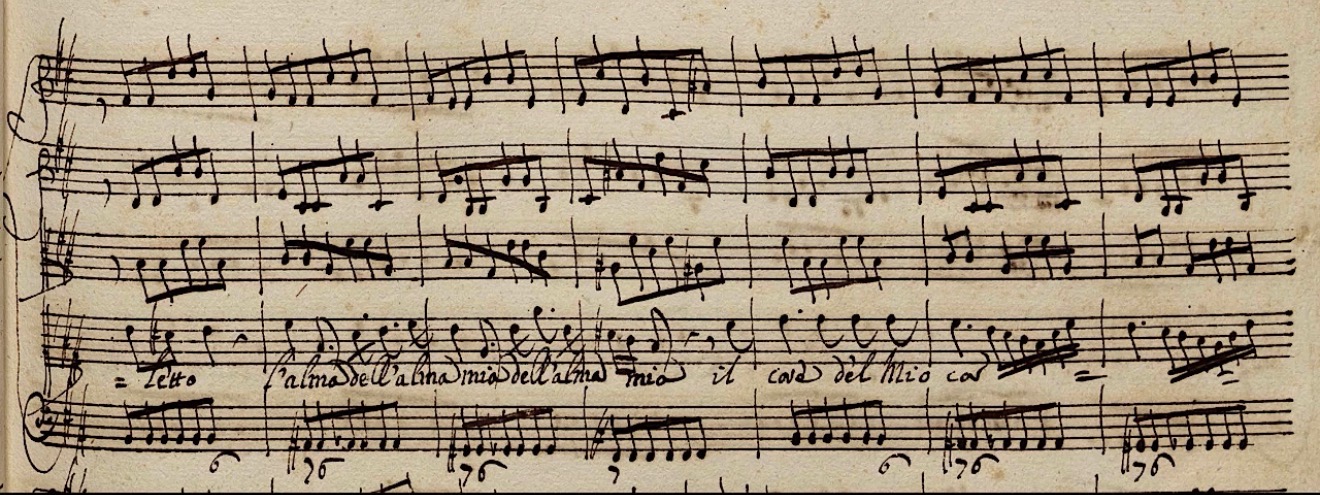 = letto l'alma dell'alma mia dell'alma mia il core del Mio cor = =
6 76 76 7 6 76 76